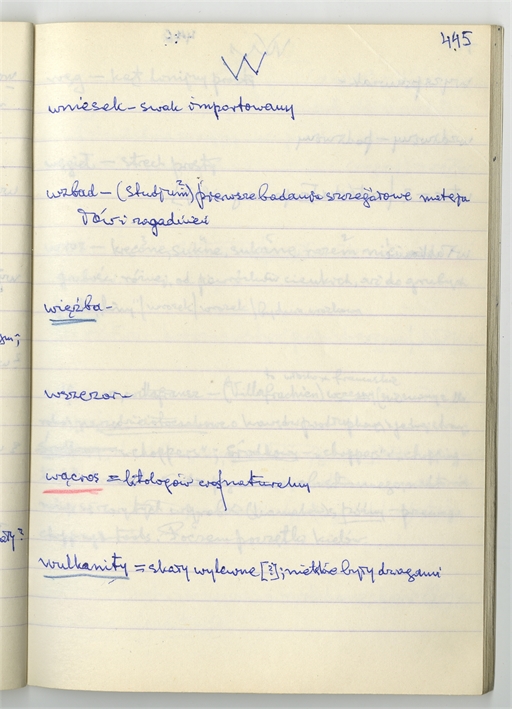 445
W
wniesek – swak importowany
wzbad – (studjum?) pierwsze badania szczegółowe materja
łów i zagadnień
więźba –
wszczor –
wącros = litologów
wulkanity = skały wylewne [?]; niektóre były drogami